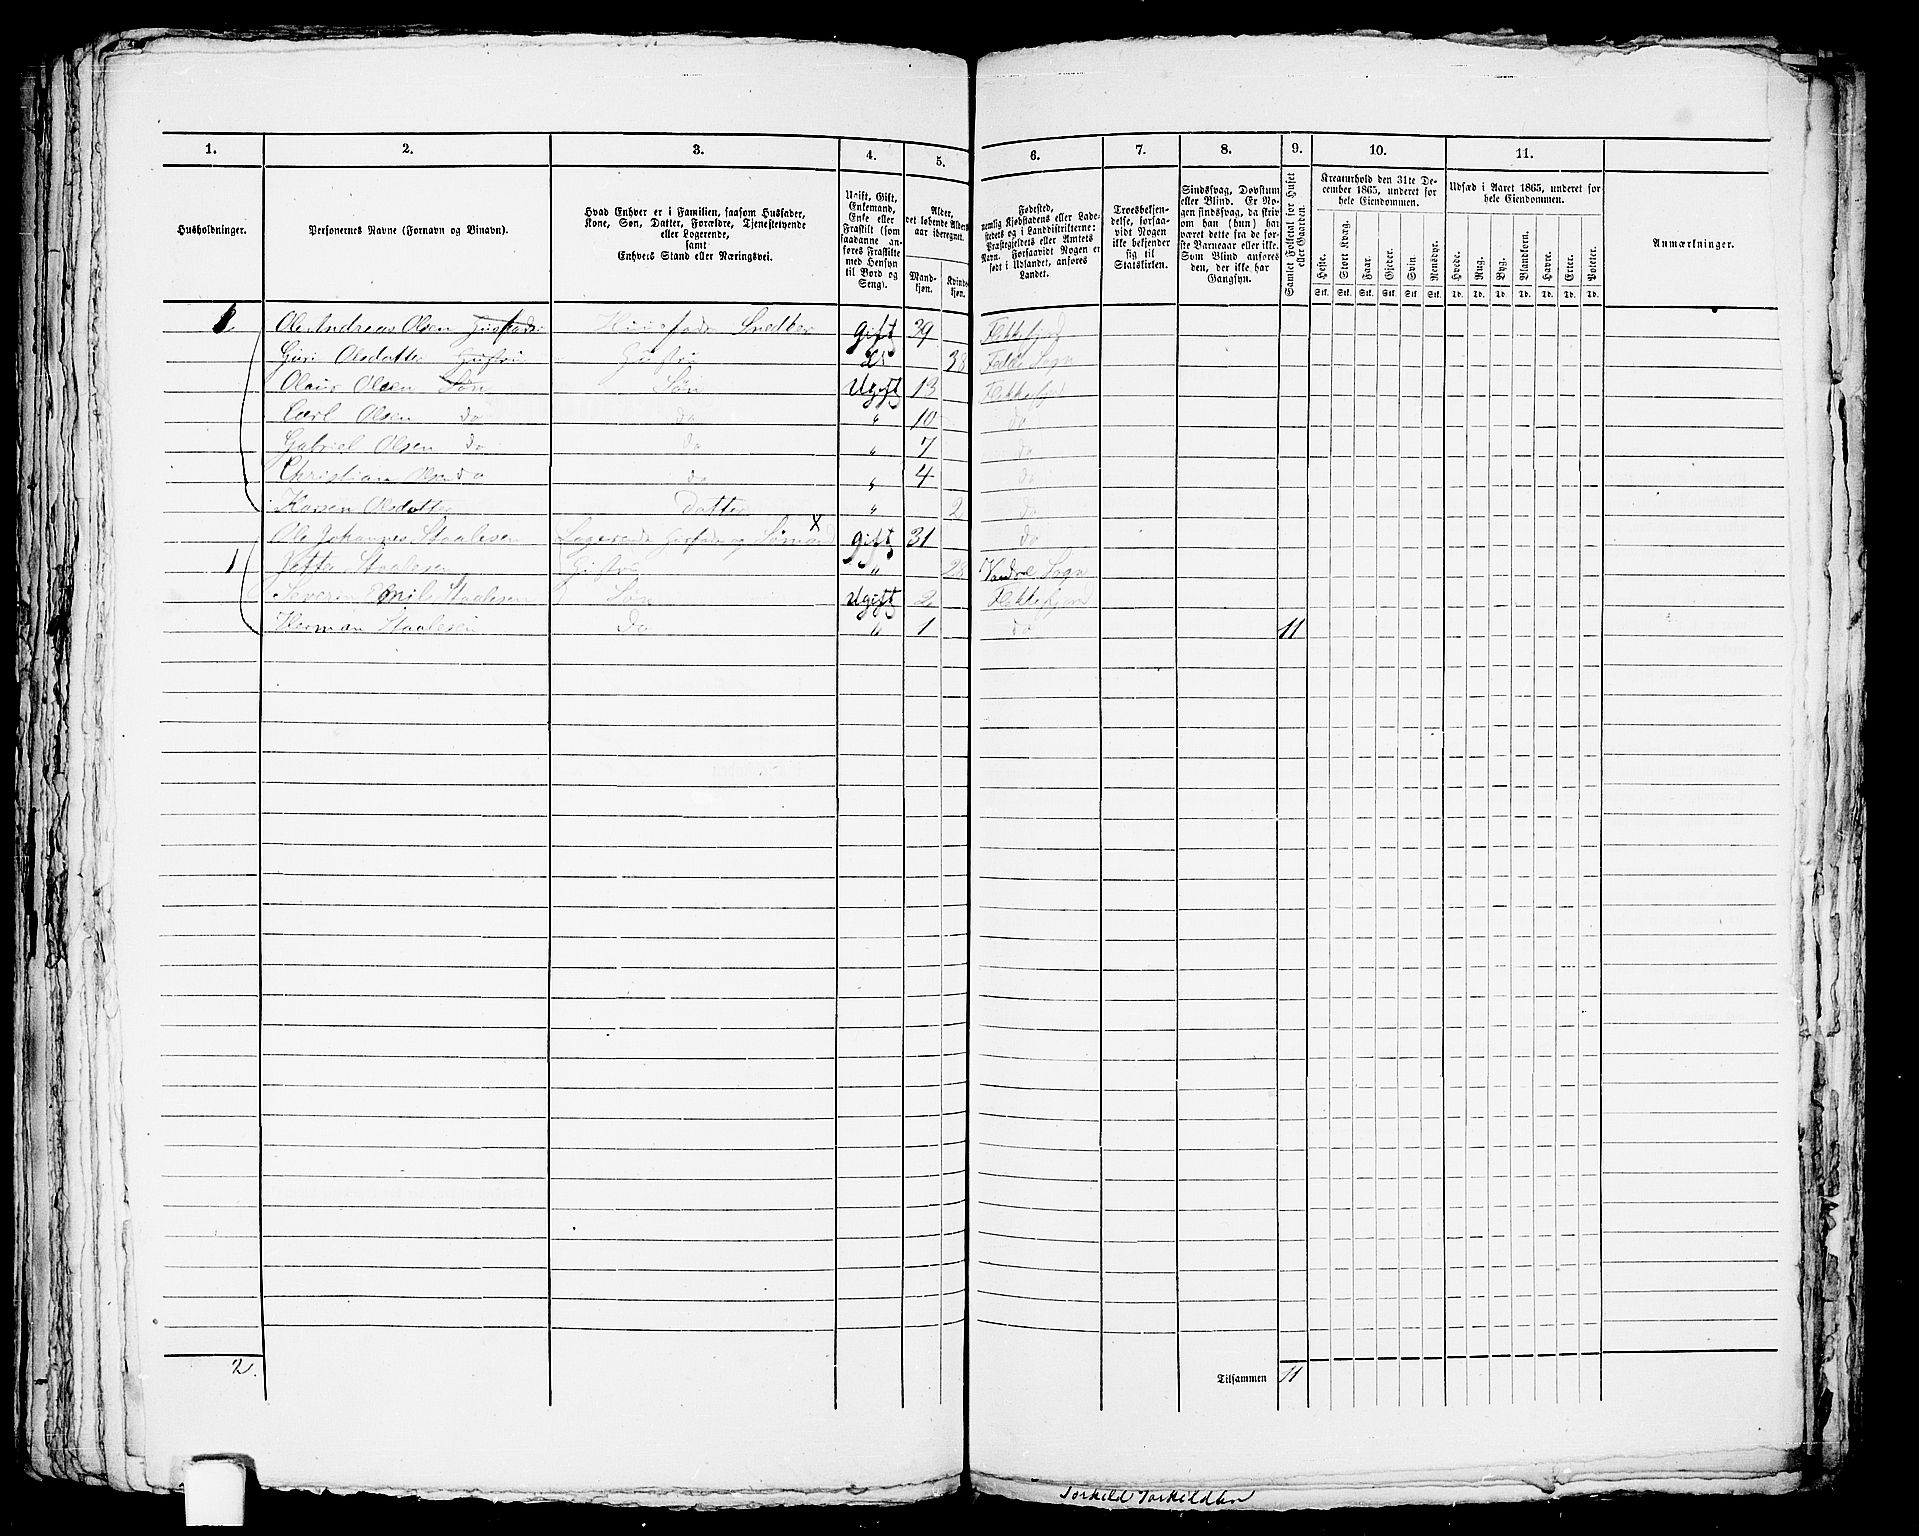 1. 2. 3. 4. 5. 6. 7. 8. 9. 10. 11.
Husholdninger.
Personernes Navne (Fornavn og Binavn).
Hvad Enhver er i Familien, saasom Husfader,
Kone, Søn, Datter, Forældre, Tjenestetyende
eller Logerende,
samt
Enhvers Stand eller Næringsvei.
Ugift, Gift,
Enkemand,
Enke eller
Fraskilt (som
saadanne an-
føres Fraskilte
med Hensyn
til Bord og
Seng).
Alder,
det løbende Alders-
aar iberegnet.
Mand-
kjøn.
Kvinde-
kjøn.
Fødested,
nemlig Kjøbstadens eller Lade-
stedets og i Landdistrikterne:
Præstegjeldets eller Amtets
Navn. Forsaavidt Nogen er
født i Udlandet, anføres
Landet.
Troesbekjen-
delse, forsaa-
vidt Nogen
ikke bekjender
sig til
Statskirken.
Sindssvag, Døvstum
eller Blind. Er No-
gen sindssvag, da skriv
om han (hun) har
været dette fra de før-
ste Barneaar eller ikke.
Som Blind anføres
den, der ikke har
Gangsyn.
Samlet Folketal for Huset
eller Gaarden.
Kreaturhold den 31te De-
cember 1865, underet for
hele Eiendommen.
Heste. Stort Kvæg. Faar. Gjeder. Svin. Rensdyr.
Stk. Stk. Stk. Stk. Stk. Stk.
Udsæd i Aaret 1865, underet for
hele Eiendommen.
Hvede. Rug. Byg. Blandkorn. Havre. Erter. Poteter.
Td. Td. Td. Td. Td. Td. Td.
Anmærkninger.
1 Ole Andreas Olsen Husfader Huusfader Snedker Gift 39 Flekkefjord
Guri Olsdatter Hustru Hustru Do 38 Fede Sogn
Olaus Olsen Søn Søn Ugift 13 Flekkefjord
Carl Olsen do do " 10 do
Gabriel Olsen do do " 7 do
Christian Olsen do do " 4 do
Karen Olsdatter Datter " 2 do
Ole Johannes Staalesen Logerende Husfader og Sømand X Gift 31 do
1 Staalesen Hustru " 28 Sogn
Severin Emil Staalesen Søn Ugift 2 Flekkefjord
Herman Staalesen Do " 1 do 11
2. Tilsammen 11
Torkild Torkildsen